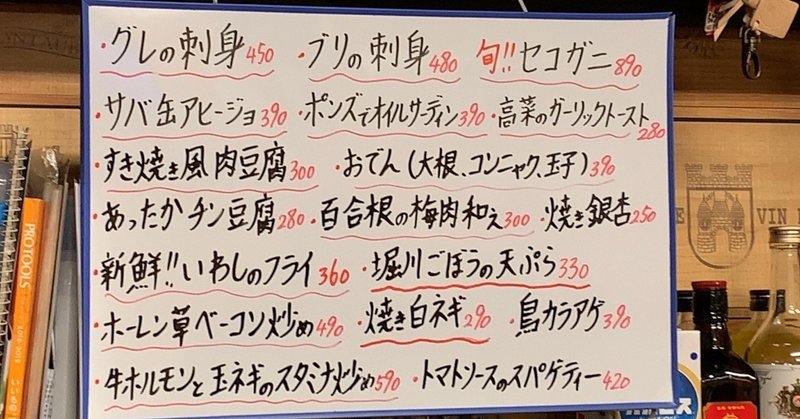 ・グレの刺身450 ・ブリの刺身480 旬!!セコガニ890
・サバ缶アヒージョ390 ・ポンズでオイルサーディン390 ・高菜のガーリックトースト280
・すき焼き風肉豆腐300 ・おでん(大根、コンニャク、玉子)390
・あったかチン豆腐280 ・百合根の梅肉和え300 ・焼き銀杏250
・新鮮!!いわしのフライ360 ・堀川ごぼうの天ぷら330
・ホーレン草ベーコン炒め490 ・焼き白ネギ290 ・鳥カラアゲ390
・牛ホルモンと玉ネギのスタミナ炒め590 ・トマトソースのスパゲティー420
PROTOOLS
VIN